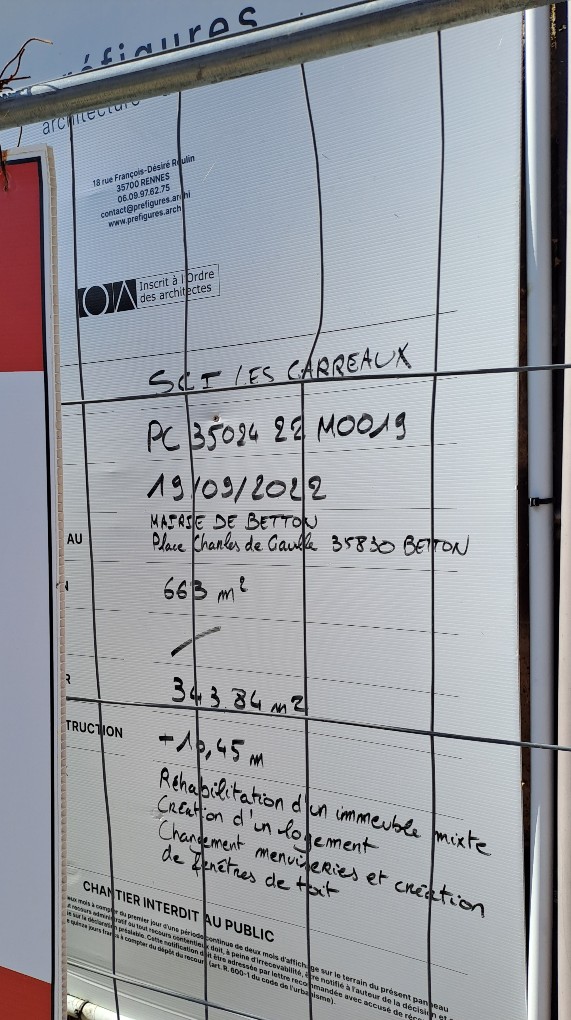 préfigures
architecture
18 rue François-Désiré Roulin
35700 RENNES
06.09.97.62.75
contact@prefigures.archi
www.prefigures.archi
Inscrit à l'Ordre
des architectes
SCI LES CARREAUX
PC 35024 22 M0019
19/09/2022
MAIRIE DE BETTON
AU Place Charles de Gaulle 35830 BETTON
663 m²
R 343.84 m²
TRUCTION +10,45 m
Réhabilitation d'un immeuble mixte
Création d'un logement
Changement menuiseries et création
de fenêtres de toit
CHANTIER INTERDIT AU PUBLIC
eux mois à compter du premier jour d'une période continue de deux mois d'affichage sur le terrain du présent panneau
recours administratif ou tout recours contentieux doit, à peine d'irrecevabilité, être notifié à l'auteur de la décision et
sur la déclaration préalable. Cette notification doit être adressée par lettre recommandée avec accusé de réc
quinze jours francs à compter du dépôt du recours (art. R. 600-1 du code de l'urbanisme).